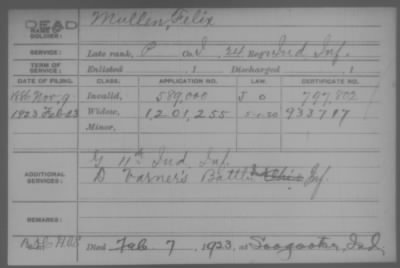 DEAD
NAME OF SOLDIER:
Mullen, Felix
SERVICE:
Late rank, P Co. I, 24 Reg't Ind Inf.
TERM OF SERVICE:
Enlisted , 1 Discharged , 1
DATE OF FILING. CLASS. APPLICATION NO. LAW. CERTIFICATE NO.
1886 Nov. 9 Invalid, 589,000 J O 797,802
1923 Feb-23 Widow, 1,201,255 933717
Minor,
ADDITIONAL SERVICES:
G 11th Ind. Inf.
D Varner's Batt'l Ohio Inf.
REMARKS:
Died Feb 7, 1923, at Loogootee, Ind.